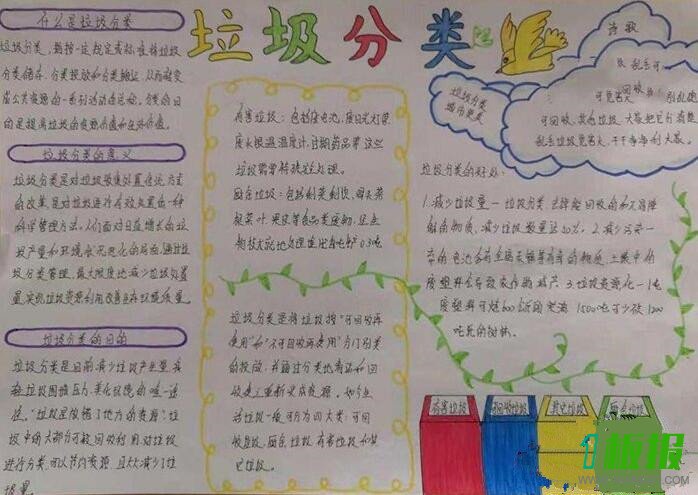 垃圾分类
什么是垃圾分类
垃圾分类，一般按一定规定或标准将垃圾
分类储存、分类投放和分类搬运，从而转变
成公共资源的一系列活动的总称。分类的目
的是提高垃圾的资源价值和经济价值。
垃圾分类的意义
垃圾分类是对垃圾收集处置传统方式
的改革，是对垃圾进行有效处置的一种
科学管理方法。人们面对日益增长的垃
圾产量和环境状况恶化的局面，通过垃
圾分类管理，最大限度地减少垃圾处置
量，实现垃圾资源利用，改善生存环境质量。
垃圾分类的目的
垃圾分类是目前减少垃圾产业量，
垃圾围城压力，美化环境的唯一途
径。"垃圾是放错了地方的资源"，垃
圾中的大部分可被回收利用，对垃圾
进行分类，可以节约资源，且大大减少了垃
圾量。
有害垃圾：包括废电池、废日光灯管、
废水银温度计、过期药品等，这些
垃圾需要特殊安全处理。
厨余垃圾：包括剩菜剩饭、骨头、菜
根菜叶、果皮等食品类废物，经生
物技术就地处理堆肥，每吨可生产0.3吨
垃圾分类是将垃圾按"可回收再
使用"和"不可回收再使用"分门别类
的投放，并通过分类地清运和回
收使之重新变成资源。如今生
活垃圾一般可分为四大类：可回
收垃圾、厨余垃圾、有害垃圾和其
它垃圾。
诗歌
乱丢可
可回收
可回收，其他垃圾，大家把它分清楚
乱丢垃圾危害大，干干净净利大家。
垃圾分类
城市更美
垃圾分类的好处：
1.减少垃圾量－垃圾分类，去掉能回收的和不易降
解的物质，减少垃圾数量达50%。2.减少污染－
弃的电池含有金属汞镉等有毒的物质，土壤中的
废塑料会导致农作物减产。3.垃圾资源化－1吨
废塑料可炼600公斤的柴油，1500吨可少砍1200
吨死的树林。
有害垃圾
可回收垃圾
其它垃圾
厨余垃圾
板报